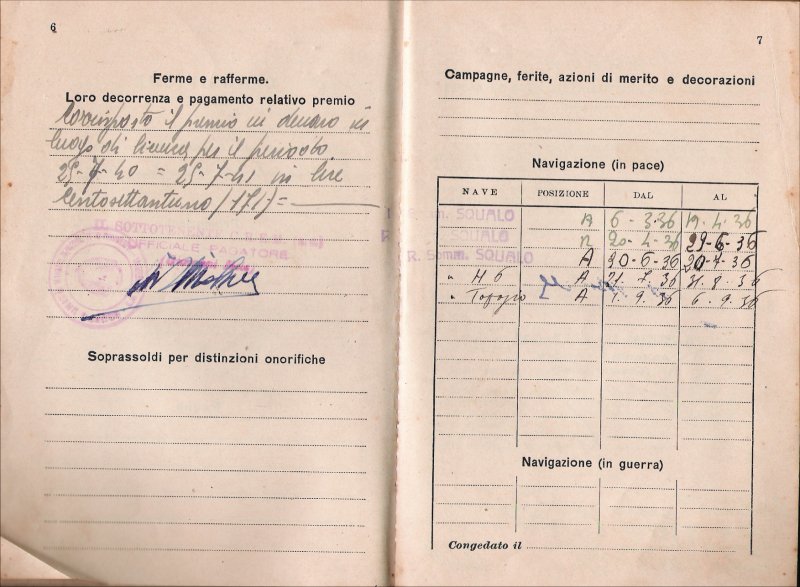 6
Ferme e rafferme.
Loro decorrenza e pagamento relativo premio
Corrisposto il premio in denaro in
luogo di licenza per il periodo
25-7-40 = 25-7-41 in lire
Centosettantuno (171) =
IL SOTTOTENENTE
UFFICIALE PAGATORE
Soprassoldi per distinzioni onorifiche
7
Campagne, ferite, azioni di merito e decorazioni
Navigazione (in pace)
NAVE POSIZIONE DAL AL
Somm. SQUALO A 6-3-36 19-4-36
SQUALO R 20-4-36 29-6-36
R. Somm. SQUALO A 30-6-36 20-7-36
" H 6 A 21.7.36 31.8.36
" Topazio A 1.9.36 6.9.36
Navigazione (in guerra)
Congedato il